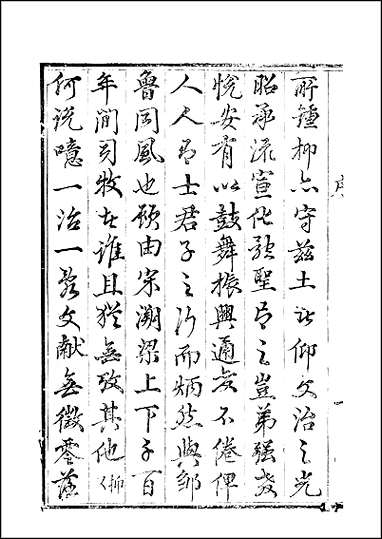 序
所鍾抑亦守茲土者仰文治之光
昭承流宣化歌聖君之豈弟強教
悅安有以鼓舞振興邇安不倦俾
人人有士君子之行而炳然與鄒
魯同風也顧由宋溯梁上下千百
年間司牧者誰且猶無攷其他抑
何說噫一治一亂文獻無徵零落